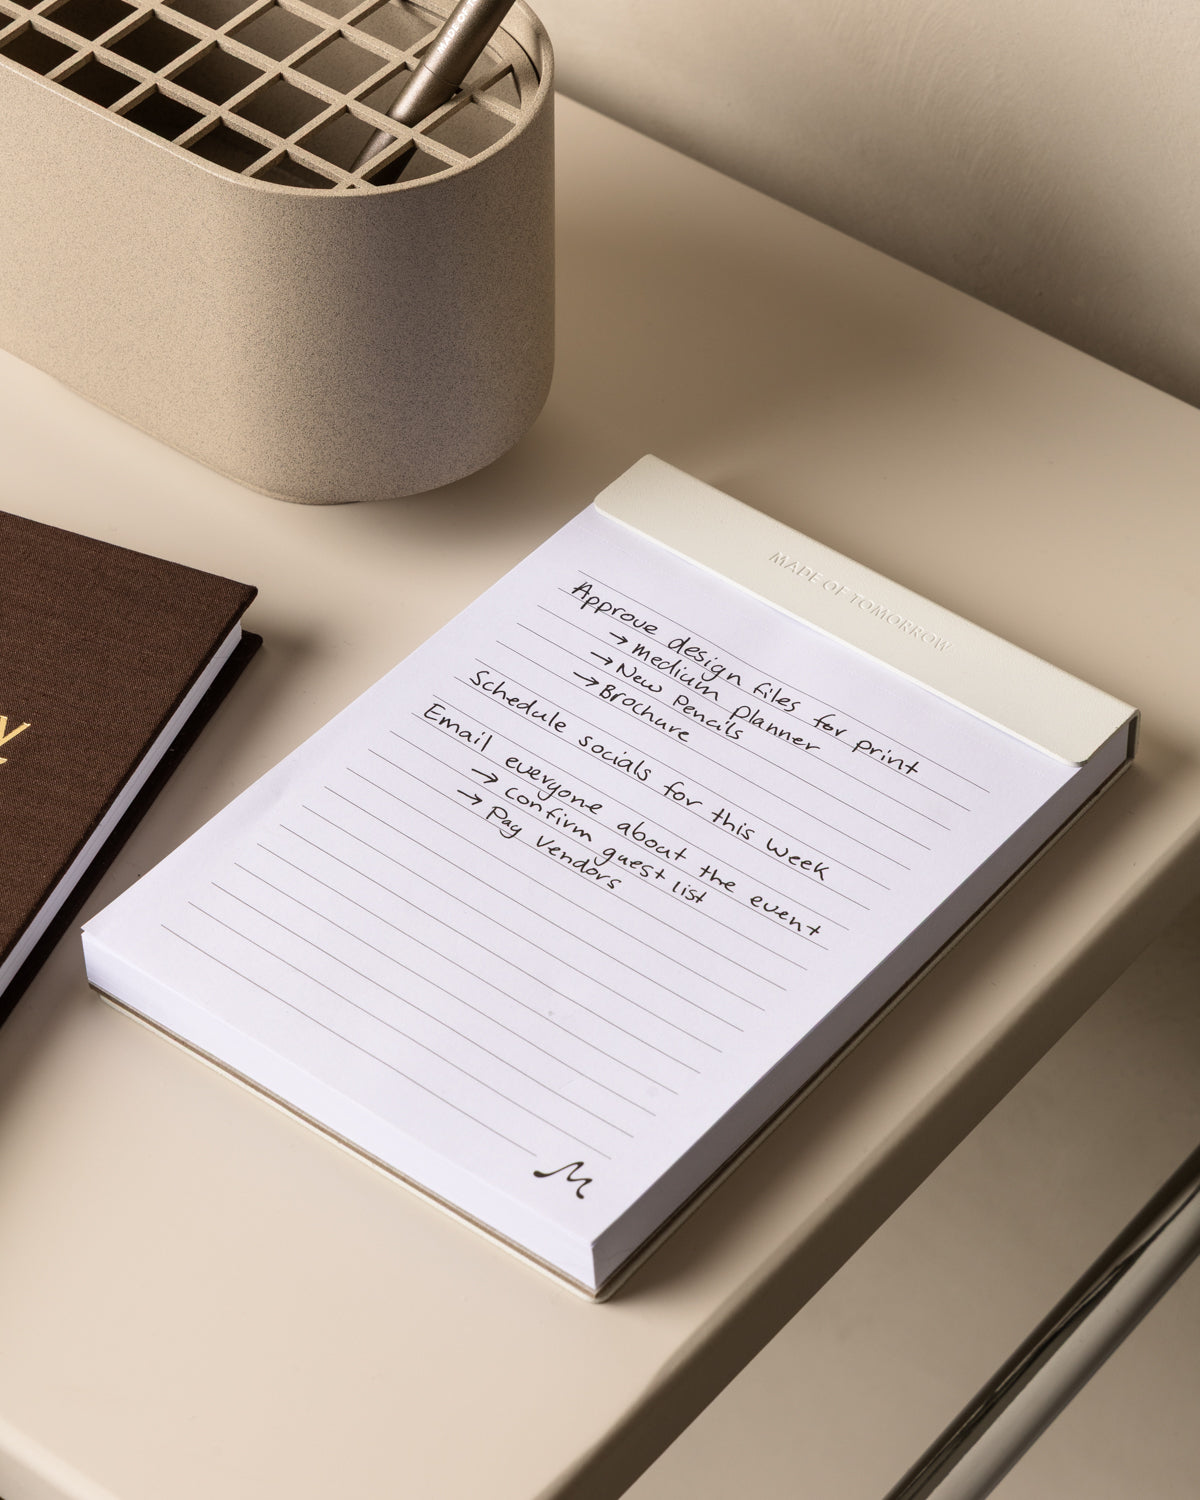 MADE OF TOMORROW
Approve design files for print
→ medium planner
→ New Pencils
→ Brochure
Schedule socials for this week
Email everyone about the event
→ confirm guest list
→ Pay vendors
M